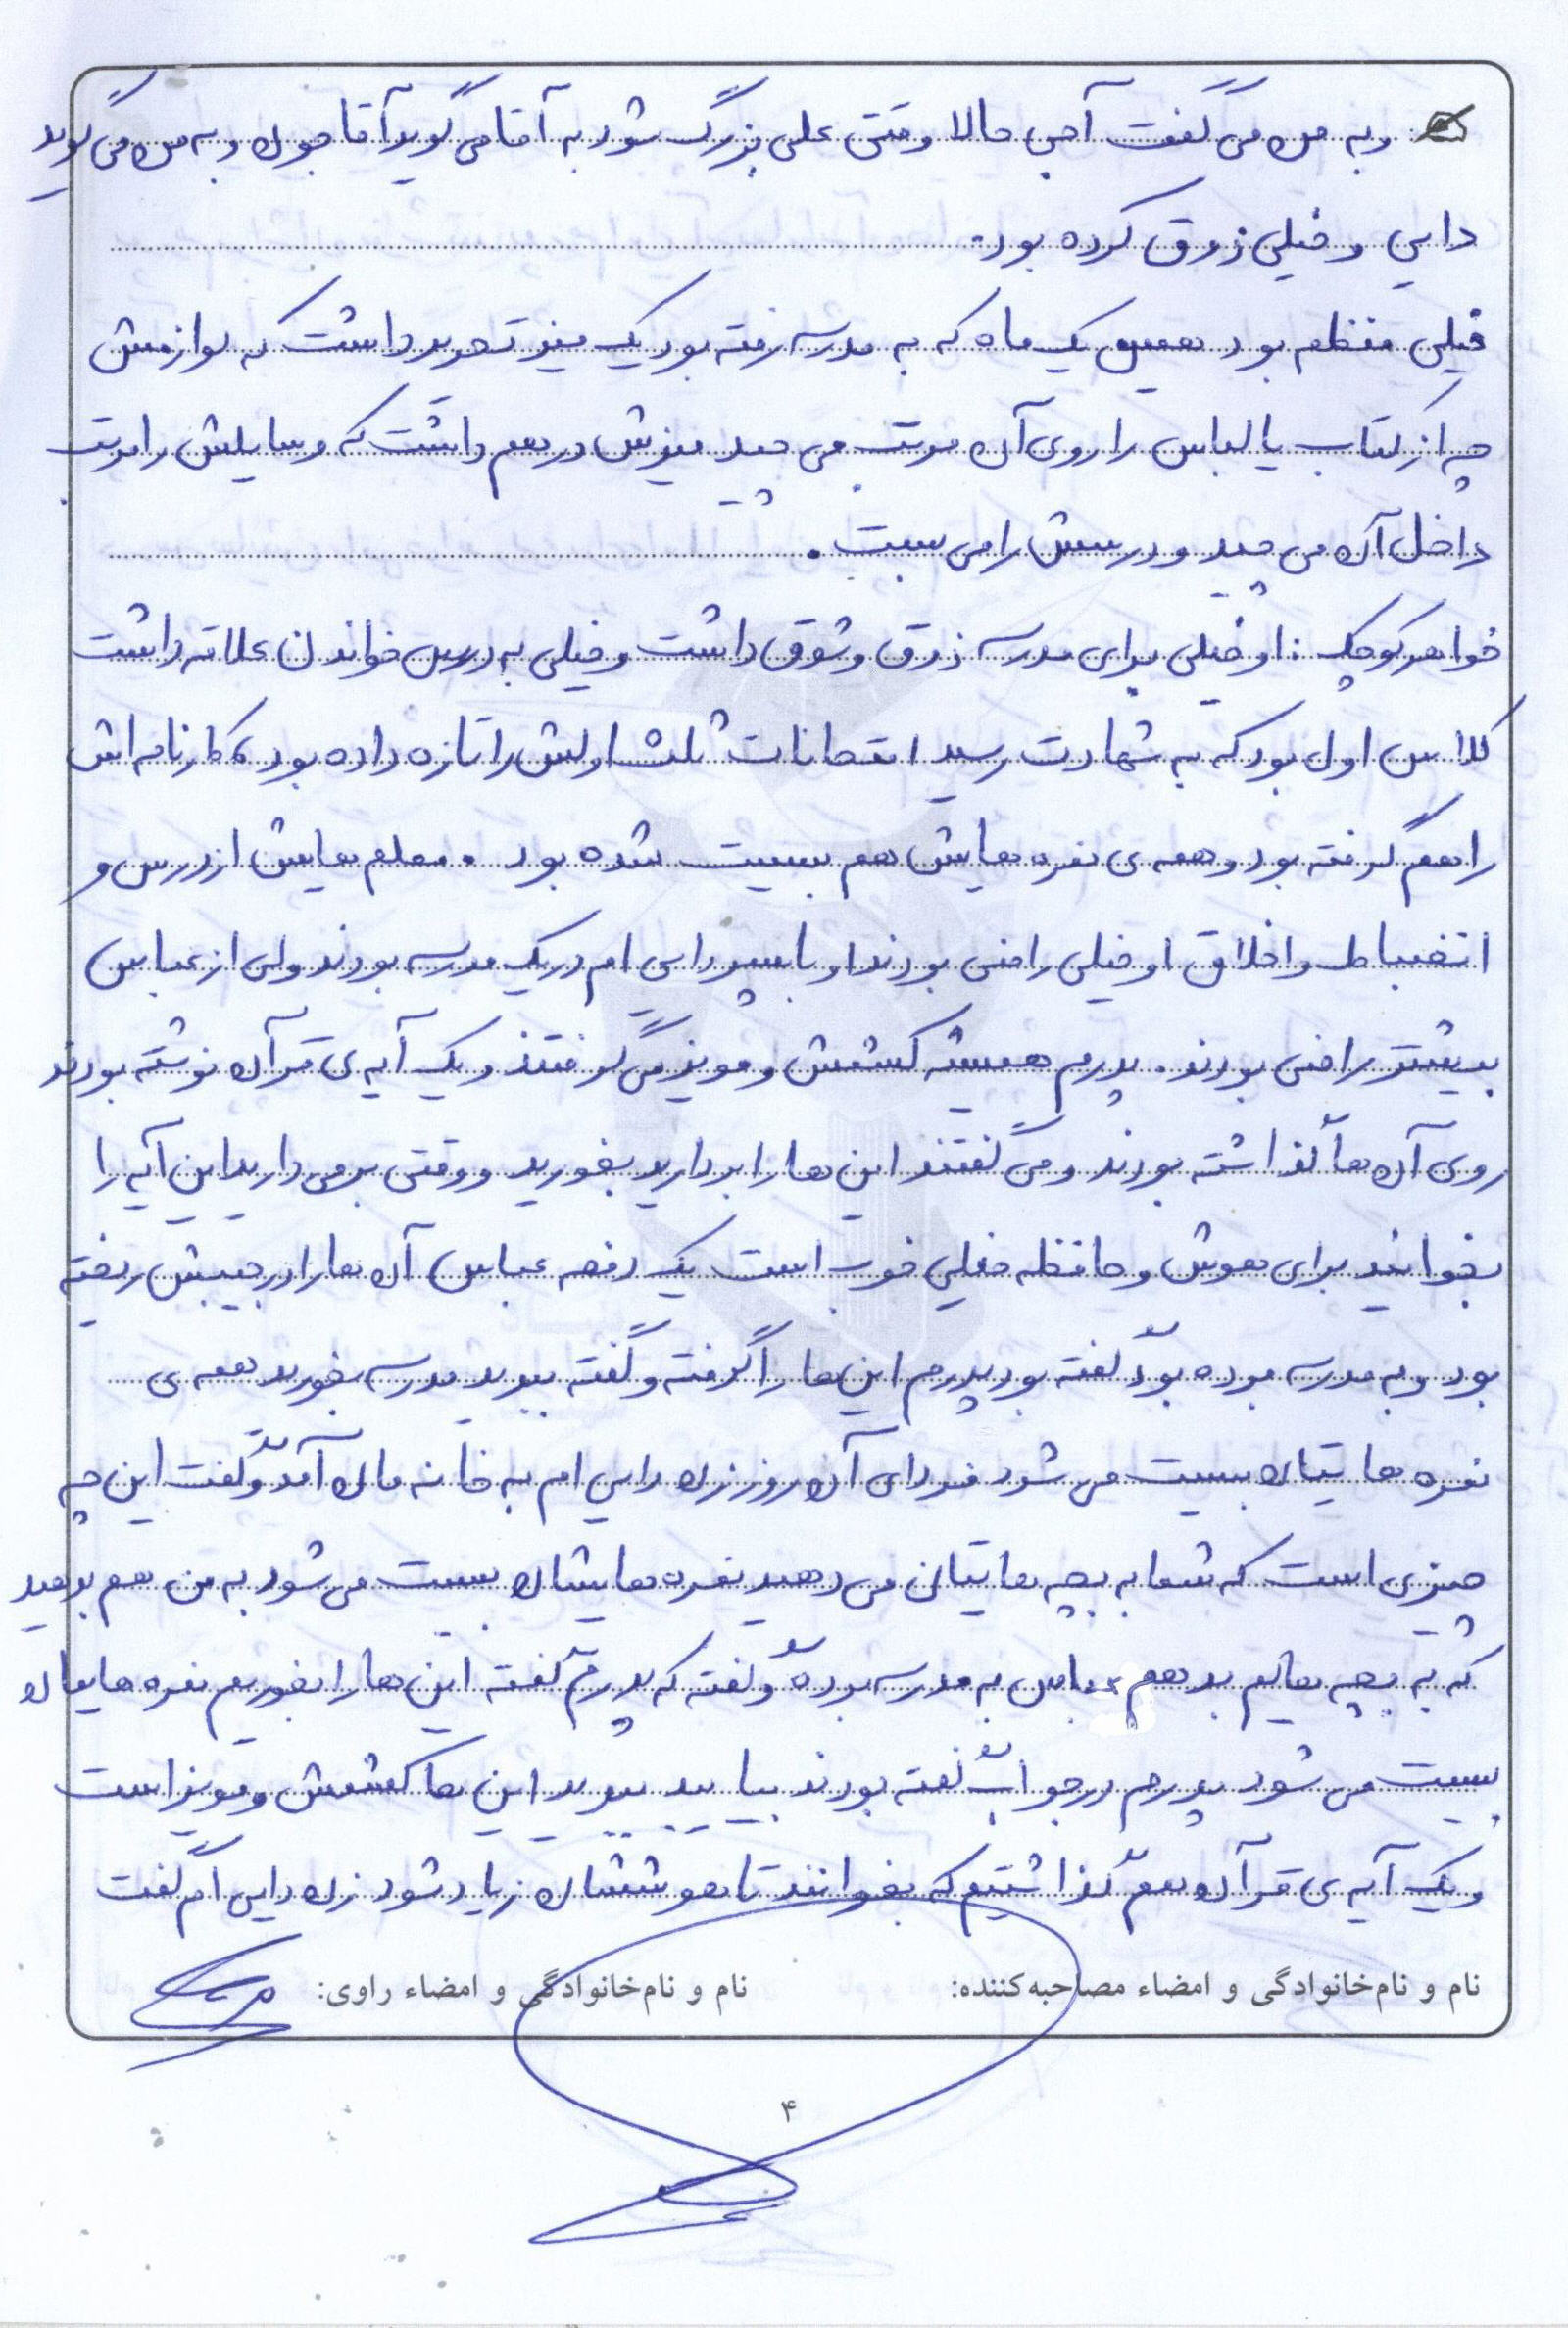 و به من می گفت آجی حالا وقتی علی بزرگ شود به آقا می گوید آقا جون و به من می گوید
دایی و خیلی ذوق کرده بود.
خیلی منظم بود همین یک ماه که به مدرسه رفته بود یک میز تحریر داشت که لوازمش
چه از کتاب یا لباس را روی آن مرتب می چید میزش در هم داشت که وسایلش را مرتب
داخل آن می چید و درسش را می بست.
خواهر کوچک: او خیلی برای مدرسه ذوق و شوق داشت و خیلی به درس خواندن علاقه داشت
کلاس اول بود که به شهادت رسید امتحانات ثلث اولش را تازه داده بود، کارنامه اش
را هم گرفته بود و همه ی نمره هایش هم بیست شده بود. معلم هایش از درس و
انضباط و اخلاق او خیلی راضی بودند او با پسر دایی ام در یک مدرسه بودند ولی از عباس
بیشتر راضی بودند. پدرم همیشه کشمش و مویز می گرفتند و یک آیه ی قرآن نوشته بودند
روی آن ها گذاشته بودند و می گفتند این ها را بردارید بخورید و وقتی برمی دارید این آیه را
بخوانید برای هوش و حافظه خیلی خوب است یک دفعه عباس آن ها را در جیبش ریخته
بود و به مدرسه برده بود گفته بود پدرم این ها را گرفته و گفته ببرید مدرسه بخورید همه ی
نمره هایتان بیست می شود فردای آن روز زن دایی ام به خانه مان آمد و گفت این چه
چیزی است که شما به بچه هایتان می دهید نمره هایشان بیست می شود به من هم بدهید
که به بچه هایم بدهم عباس به مدرسه برده و گفته که پدرم گفته این ها را بخوریم نمره هایمان
بیست می شود پدرم در جواب گفته بودند بیایید ببرید این ها کشمش و مویز است
و یک آیه ی قرآن هم گذاشتیم که بخوانند تا هوششان زیاد شود زن دایی ام گفت
نام و نام‌خانوادگی و امضاء مصاحبه‌کننده: نام و نام‌خانوادگی و امضاء راوی:
۴